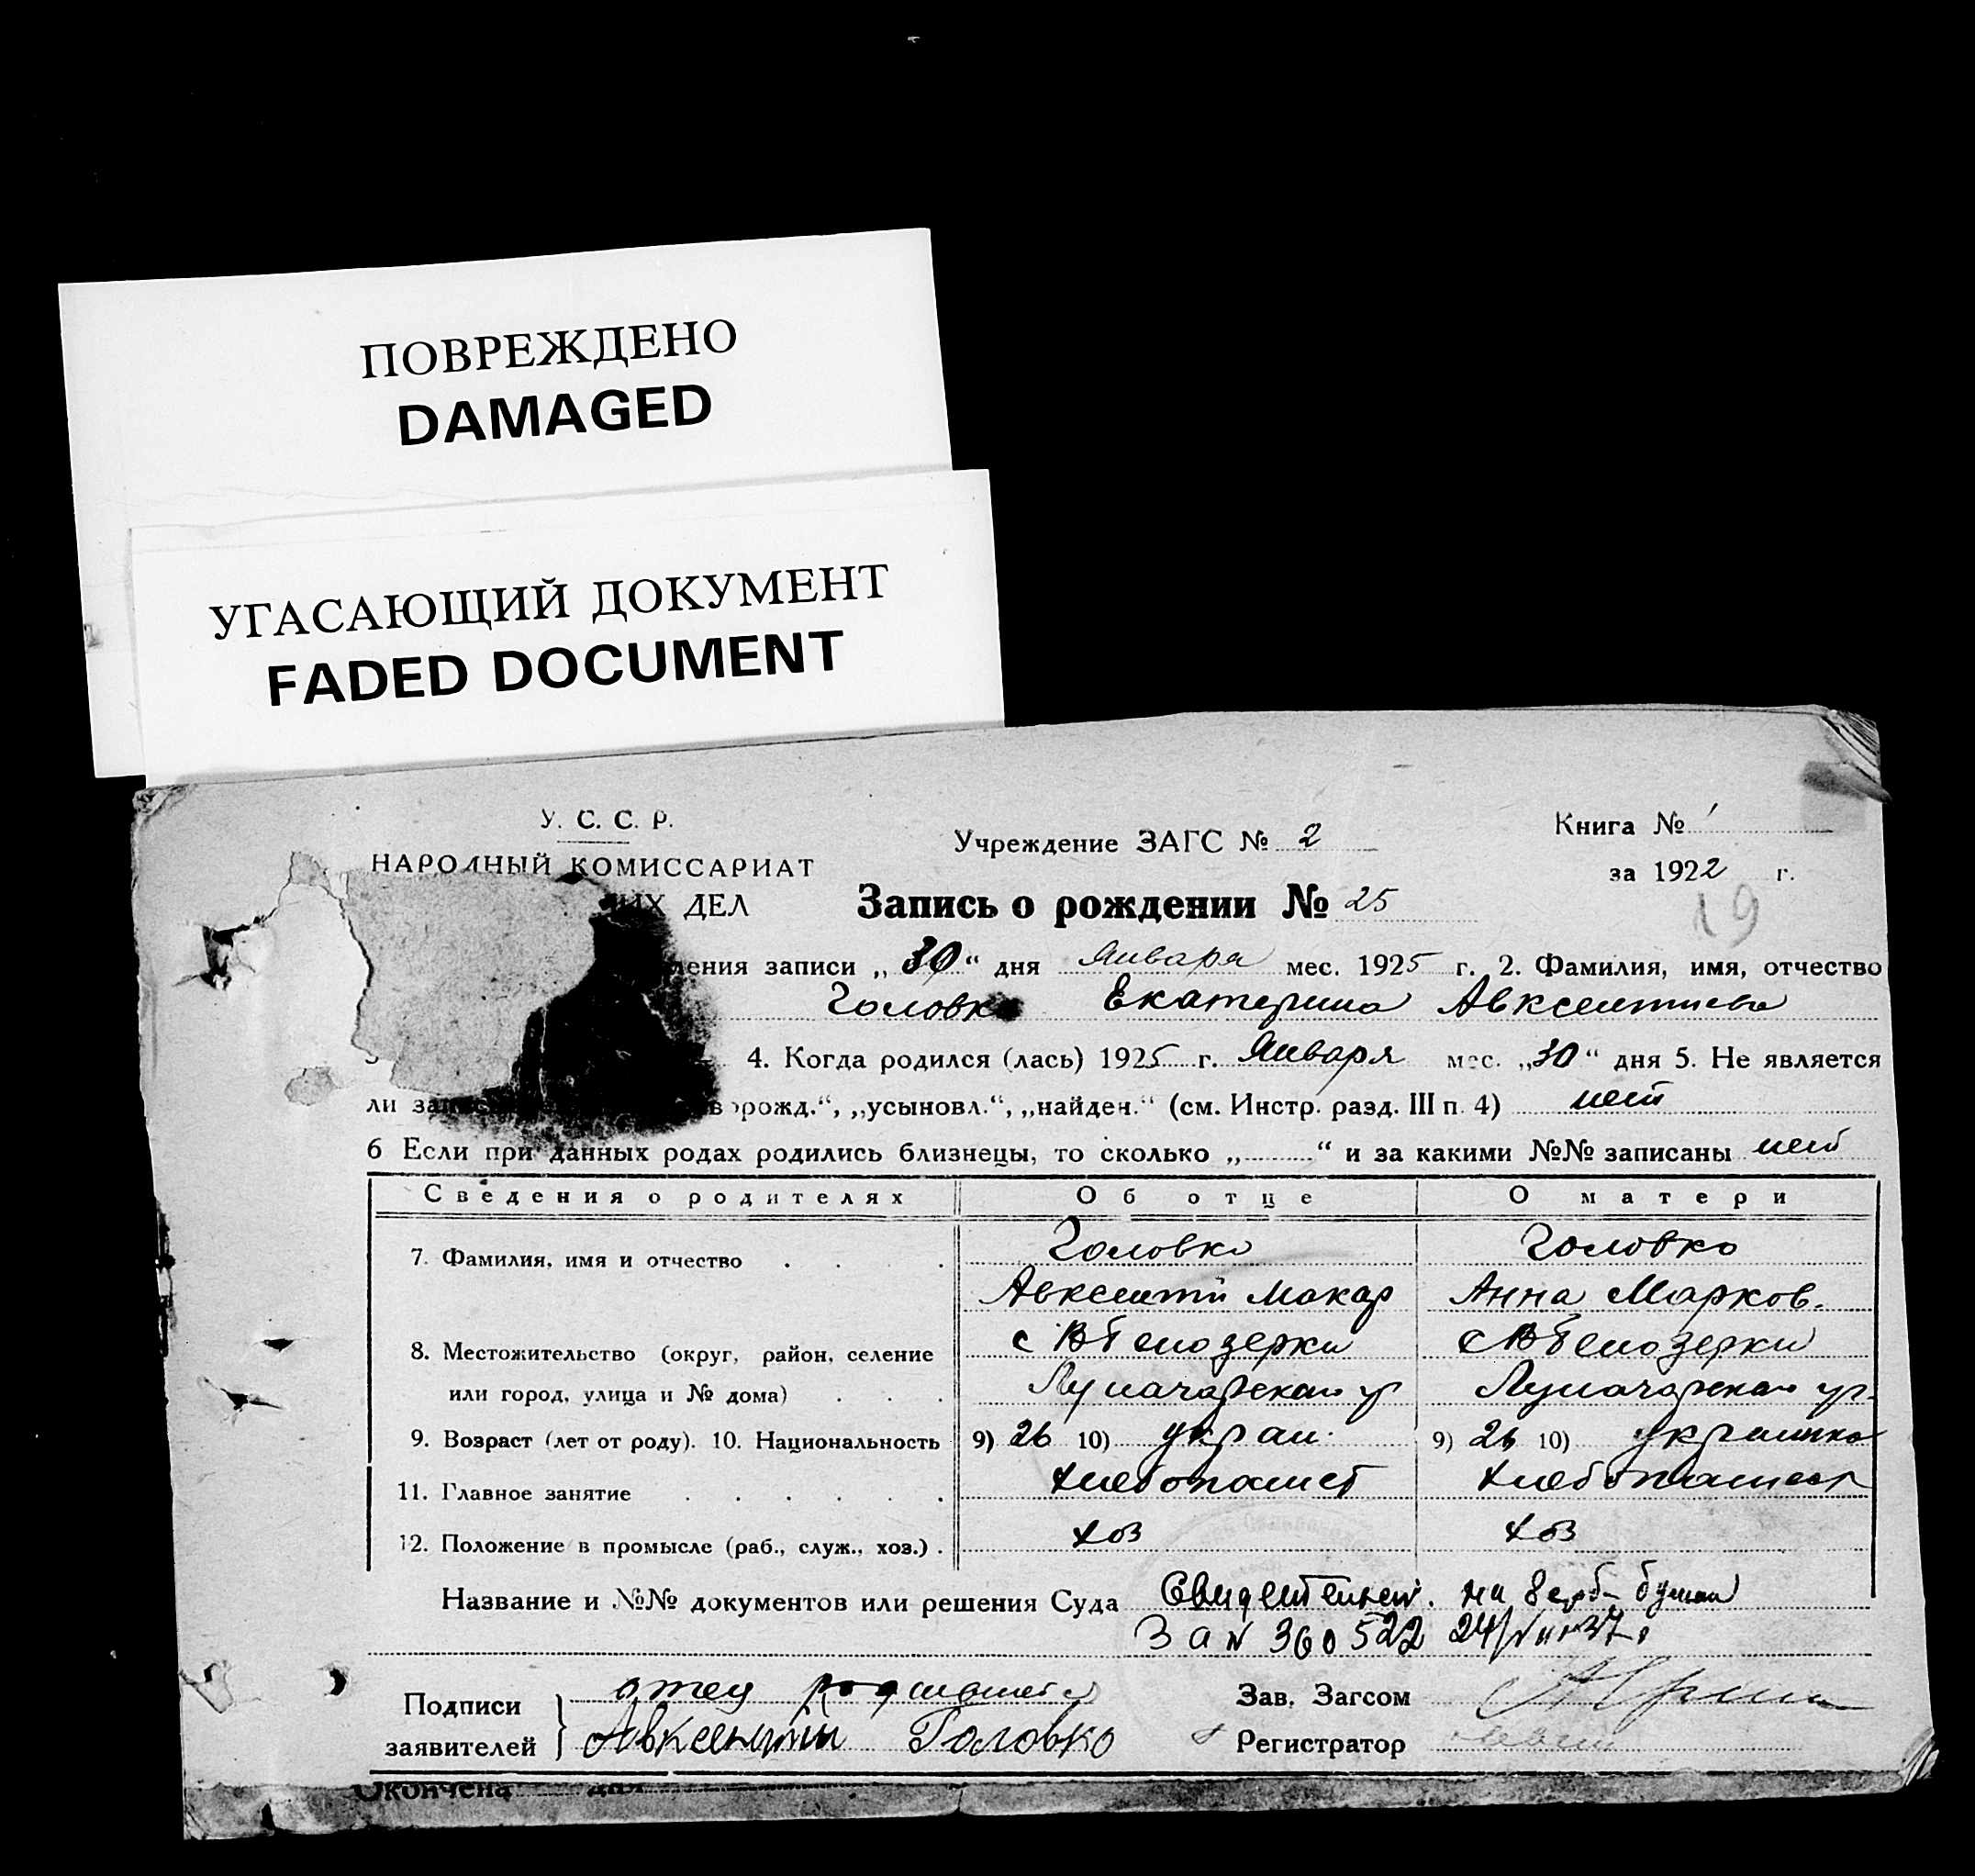 ПОВРЕЖДЕНО
DAMAGED
УГАСАЮЩИЙ ДОКУМЕНТ
FADED DOCUMENT
У. С. С. Р.
НАРОДНЫЙ КОМИССАРИАТ
ИХ ДЕЛ
Учреждение ЗАГС № 2
Книга № 1
за 1922 г.
Запись о рождении № 25
19
ления записи „30“ дня Января мес. 1925 г. 2. Фамилия, имя, отчество
Головко Екатерина Авксентиева
4. Когда родился (лась) 1925 г. Января мес. „30“ дня 5. Не является
ли ворожд.“, „усыновл.“, „найден.“ (см. Инстр. разд. III п. 4) нет
6 Если при данных родах родились близнецы, то сколько „ “ и за какими №№ записаны нет
Сведения о родителях Об отце О матери
7. Фамилия, имя и отчество . . . . Головко Головко
Авксентий Макар Анна Марков.
8. Местожительство (округ, район, селение с Белозерки с Белозерки
или город, улица и № дома) . . . Луначарская ул Луначарская ул.
9. Возраст (лет от роду). 10. Национальность 9) 26 10) украин. 9) 26 10) украинка
11. Главное занятие . . . . . . хлебопашест хлебопашест
12. Положение в промысле (раб., служ., хоз.) . хоз хоз
Название и №№ документов или решения Суда Свидетельст. на герб- бумаи
ЗА N 360522
Подписи заявителей } отец родившегося
Авксентий Головко
Зав. Загсом
Регистратор
Окончена дня